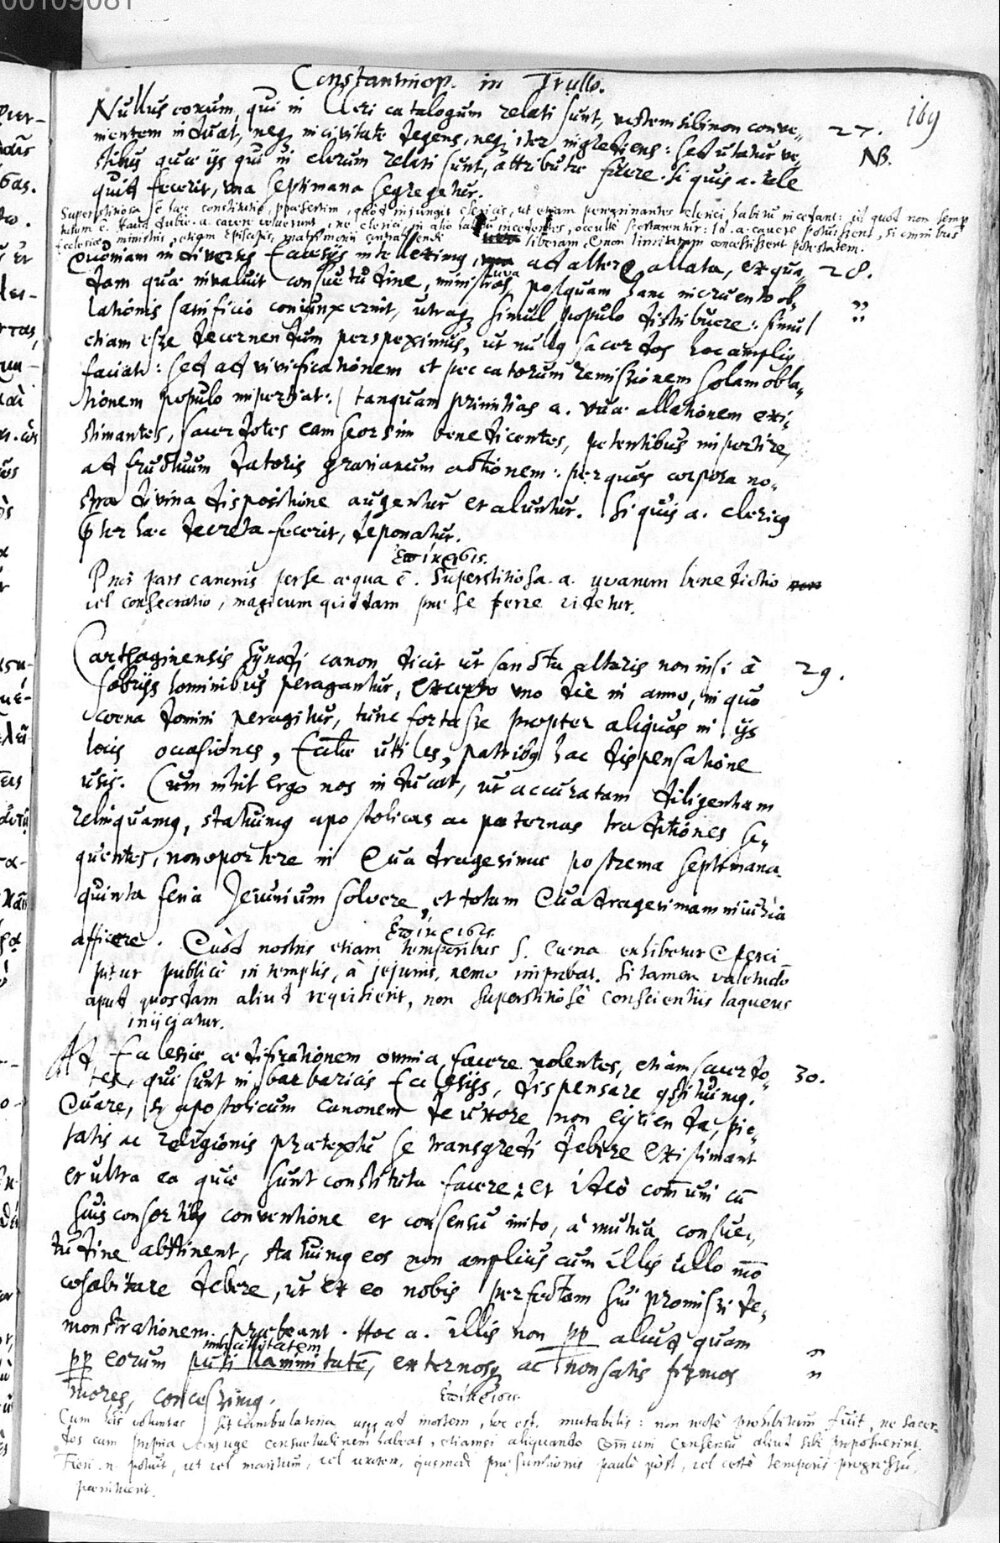 00109081
Constantinop. in Trullo.
169
Nullus eorum, qui in Cleri catalogum relati sunt, vestem sibi non conve- 27.
nientem induat, neq3 in civitate degens, neq3 iter ingrediens: sed utatur ve- NB.
stibus quae ijs qui in clerum relati sunt, attributae fuere. Si quis a. tale
quid fecerit, una septimana segregetur.
Superstitiosa se haec constitutio, praesertim, quod injungit clericis, ut etiam peregrinantes clerici habitu incedant: id quod non semp
tutum e. haud dubie a. cavere voluerunt, ne clerici in alio habitu incedentes, occulte scortarentur: Id a. cavere potuissent, si omnibus
Ecclesiae ministris, etiam Episcopis, matrimonii contrahendi liberam et non limitatam concessissent potestatem.
Quoniam in diversis Ecclesijs intelleximus, uva ad altare allata, ex qua- 28.
dam quae invaluit consuetudine, ministros, postquam hanc incruento ob-
lationis sacrificio conjunxerint, utraq3 simul populo distribuere: simul "
etiam esse decernendum perspeximus, ut nullus sacerdos hoc amplius
faciat: sed ad vivificationem et peccatorum remissionem solam obla-
tionem populo impertiat: tanquam primitias a. uvae allationem exi-
stimantes, sacerdotes eam seorsim benedicentes, petentibus impertire,
ad fructuum datoris gratiarum actionem: per quos corpora no-
stra divina dispositione augentur et aluntur. Si quis a. clericus
praeter haec decreta fecerit, deponatur.
Ἐπίκρισις.
Prior pars canonis per se aequa e. Superstitiosa a. uvarum benedictio
vel consecratio, magicum quiddam prae se ferre videtur.
Carthaginensis Synodi canon dicit ut sancta altaris non nisi à 29.
sobrijs hominibus peragantur, excepto uno die in anno, in quo
coena domini peragitur, tunc fortasse propter aliquas in ijs
locis occasiones, Eccliae utiles, patribus hac dispensatione
usis. Cum nihil ergo nos inducat, ut accuratam diligentiam
relinquamus, statuimus apostolicas ac paternas traditiones se-
quentes, non oportere in Quadragesimae postrema septimana
quinta feria Jejunium solvere, et totam Quadragesimam injuria
afficere.
Ἐπίκρισις.
Quòd nostris etiam temporibus S. Coena exhibetur et perci
pitur publicè in templis, à jejunis, nemo improbat. Si tamen valetudo
apud quosdam aliud requisierit, non superstitiosè conscientiis laqueus
injiciatur.
Ad Ecclesiae aedificationem omnia facere volentes, etiam sacerdo- 30.
tes, qui sunt in barbaricis Ecclesijs, dispensare constituimus.
Quare, si apostolicum canonem de uxore non ejicienda pie-
tatis ac religionis praetextu se transgredi debere existimant
et ultra ea quae sunt constituta facere: et ideo communi cum
suis consortibus conventione et consensu inito, à mutua consue-
tudine abstinent, statuimus eos non amplius cum illis ullo modo
cohabitare debere, ut ex eo nobis perfectam sui promissi de-
monstrationem praebeant. Hoc a. illis non pp aliud, quam "
imbecillitatem
pp eorum pusillanimitatem, externosq3 ac non satis firmos "
mores, concessimus.
Ἐπίκρισις.
Cum his voluntas sit ambulatoria usq3 ad mortem, hoc est, mutabilis: non rectè prohibitum fuit, ne sacer-
dos cum propria conjuge consuetudinem habeat, etiamsi aliquando communi consensu aliud sibi proposuerint.
Fieri n. potuit, ut vel maritum, vel uxorem, ejusmodi praesumtionis paulò post, vel certè temporis progressu,
poeniteret.